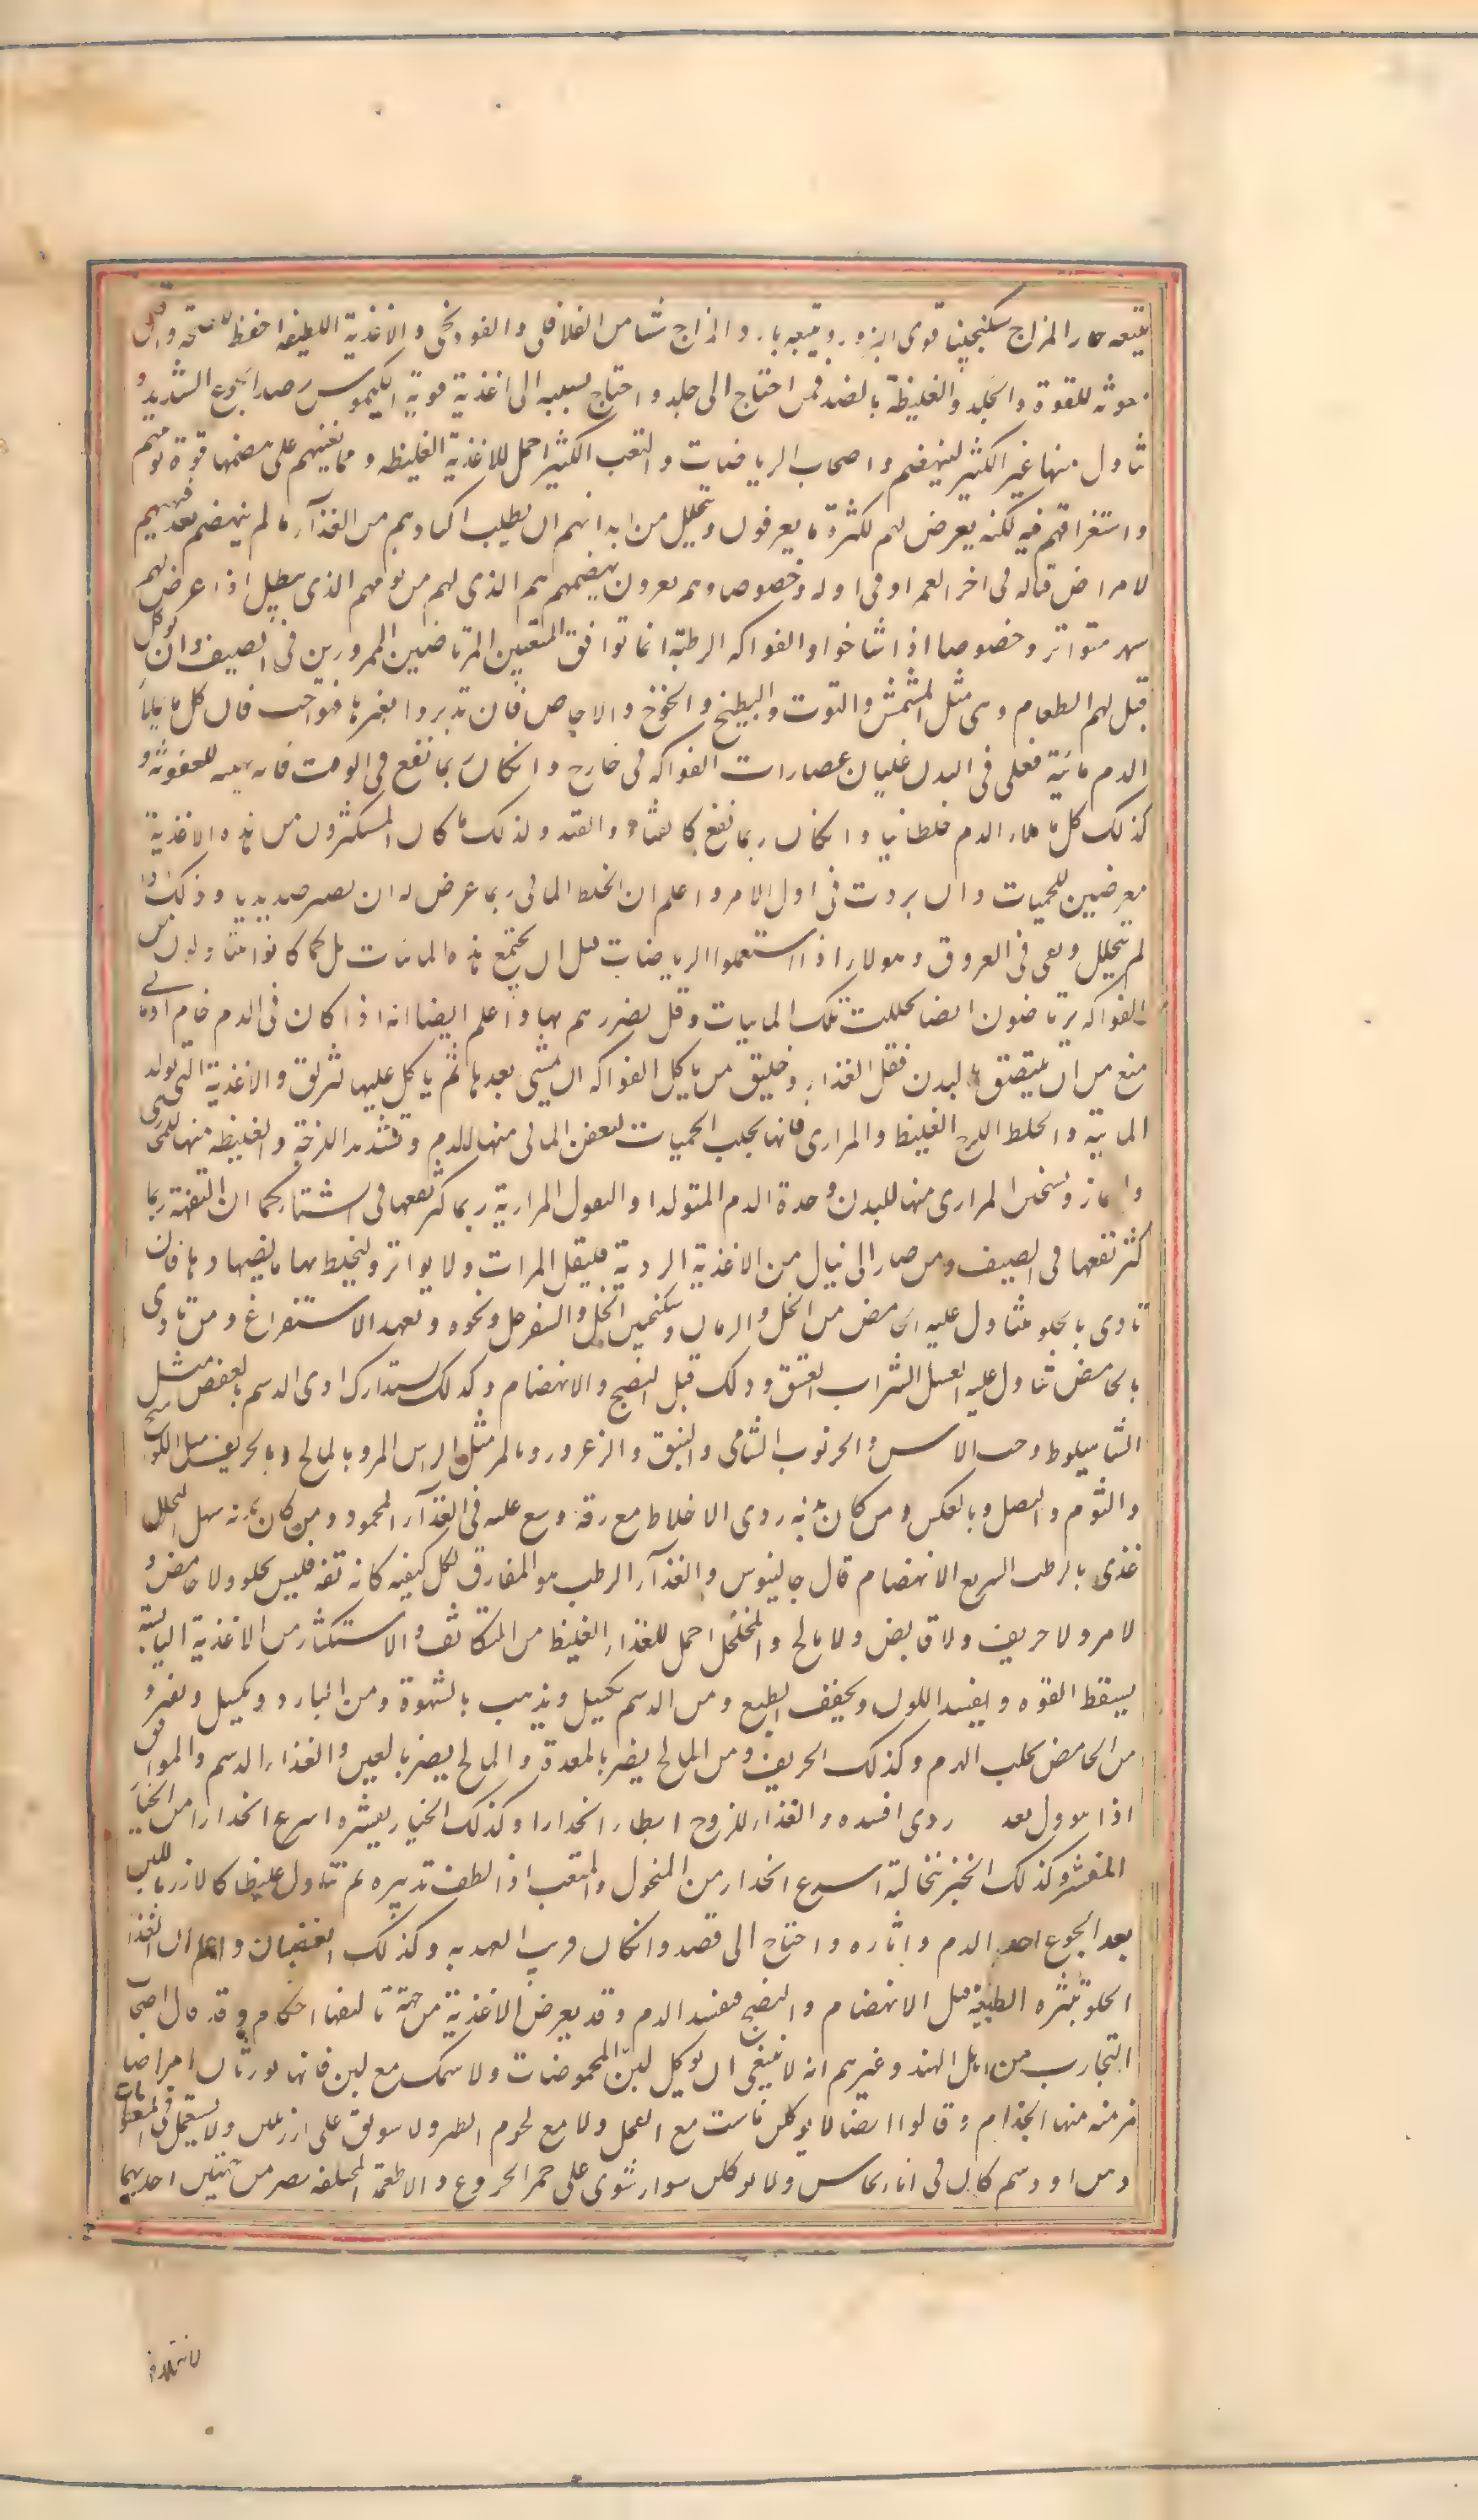 يتبعه حار المزاج سكنجبينا قوى البزور ويتبعه بارد المزاج شيئا من الفلافلى والفودنجى والاغذية اللطيفة احفظ للصحة واقل
معونة للقوة والجلد والغليظة بالضد فمن احتاج الى جلد واحتاج بسببه الى اغذية قوية الكيموس رصد الجوع الشديد و
تناول منها غير الكثير لينهضم واصحاب الرياضيات والتعب الكثير احمل للاغذية الغليظه ومما يعينهم على هضمها قوة نومهم
واستغراقهم فيه لكنه يعرض لهم لكثرة ما يعرقون ويتحلل من ابدانهم ان يطلب اكبادهم من الغذآء ما لم ينهضم بعد فيهيهم
لامراض قتاله فى اخر العمر او فى اوله وخصوصا وهم يغترون بهضمهم هم الذى لهم من نومهم الذى يبطل اذا عرض لهم
سهر متواتر وخصوصا اذا شاخوا والفواكه الرطبة انما توافق المتعبين المرتاضين الممرورين فى الصيف وان توكل
قبل لهم الطعام وهى مثل المشمش والتوت والبطيخ والخوخ والاجاص فان تدبروا بغيرها فهو احب فان كل ما يملأ
الدم مائية فغلى فى البدن غليان عصارات الفواكه فى خارج وان كان ربما نفع فى الوقت فانه يهيه للعفونة و
كذلك كل ما ملاء الدم خلطا نيا وان كان ربما نفع كالقثاء والقثد ولذلك ما كان المستكثرون من هذه الاغذية
معرضين للحميات وان بردت فى اول الامر واعلم ان الخلط المائى ربما عرض له ان يصير صديديا وذلك اذا
لم يتحلل وبقى فى العروق وهولاء اذا استعملوا الرياضات قبل ان يجتمع هذه المائيات بل كما كانوا يتناولون من
الفواكه يرتاضون ايضا تحللت تلك المائيات وقل تضررهم بها واعلم ايضا انه اذا كان فى الدم خام او مائى
منع من ان يلتصق بالبدن فقل الغذاء وخليق من ياكل الفواكه ان يمشى بعدها ثم ياكل عليها لتزلق والاغذية التى تولد
المائية والخلط اللزج الغليظ والمرارى فانها تجلب الحميات لتعفن المائى منها للدم وتشديد اللزجة والغليظه منها للمجارى
والمنافذ وتسخين المرارى منها للبدن وحدة الدم المتولد والبقول المرارية ربما كثر نفعها فى الشتاء كما ان التفهة ربما
كثر نفعها فى الصيف ومن صار الى نيال من الاغذية الردية فليقل المرات ولا يواتر وليخلط بها ما يضادها فان
تاذى بالحلو فتناول عليه الحامض من الخل والرمان وسكنجبين الخل والسفرجل ونحوه وتعهد الاستفراغ ومن تاذى
بالحامض تناول عليه العسل الشراب العتيق وذلك قبل النضج والانهضام وكذلك يستدارك اذى الدسم بالعفص مثل
الشاهبلوط وحب الاس والخرنوب الشامى والنبق والزعرور وبالمر مثل الراسن المر وبالمالح وبالحريف مثل الكوامخ
والثوم والبصل وبالعكس ومن كان بدنه ردى الاخلاط مع رقة وسع عليه فى الغذآء المحمود ومن كان بدنه سهل التحلل
غذى بالرطب السريع الانهضام قال جالينوس والغذآء الرطب هو المفارق لكل كيفيه كانه تفه فليس بحلو ولا حامض و
لا مر ولا حريف ولا قابض ولا مالح والمتخلخل احمل للغذاء الغليظ من المتكاثف والاستكثار من الاغذية اليابسة
يسقط القوه ويفسد اللون ويجفف الطبع ومن الدسم يكسل ويذهب بالشهوة ومن البارد ويكسل ويفتر و
من الحامض يجلب الهرم وكذلك الحريف ومن المالح يضر بالمعدة والمالح يضر بالعين والغذاء الدسم والموافق
اذا تنوول بعد ردى افسده والغذاء اللزوج ابطاء انحدارا وكذلك الخيار بقشره اسرع انحدارا من الخيار
المقشر وكذلك الخبز بنخالته اسرع انحدار من المنخول والمتعب اذا لطف تدبيره ثم تناول غليظا كالارز باللبن
بعد الجوع احد الدم واثاره واحتاج الى فصد وان كان قريب العهد به وكذلك الغضبان واعلم ان الغذا
الحلو تبتزه الطبيعة قبل الانهضام والنضج فيفسد الدم وقد يعرض الاغذية من جهة تاليفها احكام وقد قال اصحاب
التجارب من اهل الهند وغيرهم انه لا ينبغى ان يوكل لبن مع الحموضات ولا سمك مع لبن فانهما يورثان امراضا
مزمنه منها الجذام وقالوا ايضا لا يوكل ماست مع الفجل ولا مع لحوم الطير ولا سويق على ارز بلبن ولا يستعمل فى المطعومات
دهن او دسم كان فى اناء نحاس ولا يوكل شواء شوى على جمر الخروع والاطعمة المختلفه يضر من جهتين احديهما
لاختلاف